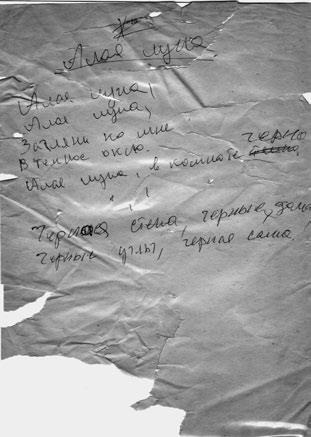 Алая луна
Алая луна,
Алая луна,
Загляни ко мне
В темное окно.
Алая луна, в комнате черно
" , !
Черная стена, черные дома,
Черные углы, черная сама.